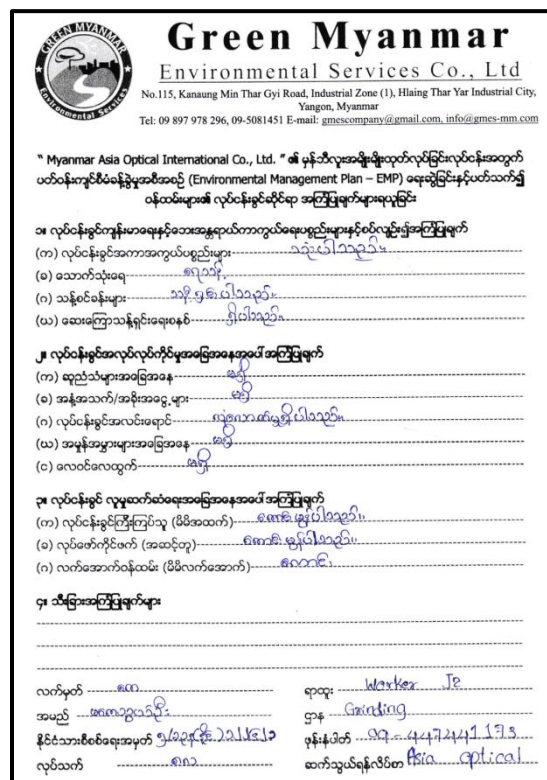 GREEN MYANMAR
Environmental Services
Green Myanmar
Environmental Services Co., Ltd
No.115, Kanaung Min Thar Gyi Road, Industrial Zone (1), Hlaing Thar Yar Industrial City,
Yangon, Myanmar
Tel: 09 897 978 296, 09-5081451 E-mail: gmescompany@gmail.com, info@gmes-mm.com
" Myanmar Asia Optical International Co., Ltd. " ၏ မှန်ဘီလူးအမျိုးမျိုးထုတ်လုပ်ခြင်းလုပ်ငန်းအတွက်
ပတ်ဝန်းကျင်စီမံခန့်ခွဲမှုအစီအစဉ် (Environmental Management Plan – EMP) ရေးဆွဲခြင်းနှင့်ပတ်သက်၍
ဝန်ထမ်းများ၏ လုပ်ငန်းခွင်ဆိုင်ရာ အကြံပြုချက်များရယူခြင်း
၁။ လုပ်ငန်းခွင်ကျန်းမာရေးနှင့်ဘေးအန္တရာယ်ကာကွယ်ရေးပစ္စည်းများနှင့်စပ်လျဉ်း၍အကြံပြုချက်
(က) လုပ်ငန်းခွင်အကာအကွယ်ပစ္စည်းများ သုံးပါသည်။
(ခ) သောက်သုံးရေ ရေသန့်
(ဂ) သန့်စင်ခန်းများ သန့်ရှင်းပါသည်။
(ဃ) ဆေးကြောသန့်ရှင်းရေးစနစ် ရှိပါသည်။
၂။ လုပ်ငန်းခွင်အလုပ်လုပ်ကိုင်မှုအခြေအနေအပေါ် အကြံပြုချက်
(က) ဆူညံသံများအခြေအနေ မရှိ
(ခ) အနံ့အသက်/အခိုးအငွေ့များ မရှိ
(ဂ) လုပ်ငန်းခွင်အလင်းရောင် လုံလောက်မှုရှိပါသည်။
(ဃ) အမှုန်အမွှားများအခြေအနေ မရှိ
(င) လေဝင်လေထွက် မရှိ
၃။ လုပ်ငန်းခွင် လူမှုဆက်ဆံရေးအခြေအနေအပေါ် အကြံပြုချက်
(က) လုပ်ငန်းခွင်ကြီးကြပ်သူ (မိမိအထက်) ကောင်းမွန်ပါသည်။
(ခ) လုပ်ဖော်ကိုင်ဖက် (အဆင့်တူ) ကောင်းမွန်ပါသည်။
(ဂ) လက်အောက်ဝန်ထမ်း (မိမိလက်အောက်) ကောင်း
၄။ သီးခြားအကြံပြုချက်များ
လက်မှတ် ရာထူး Worker J2
အမည် ဌာန Grinding
နိုင်ငံသားစိစစ်ရေးအမှတ် ဖုန်းနံပါတ် 09-447241193
လုပ်သက် ဆက်သွယ်ရန်လိပ်စာ Asia optical